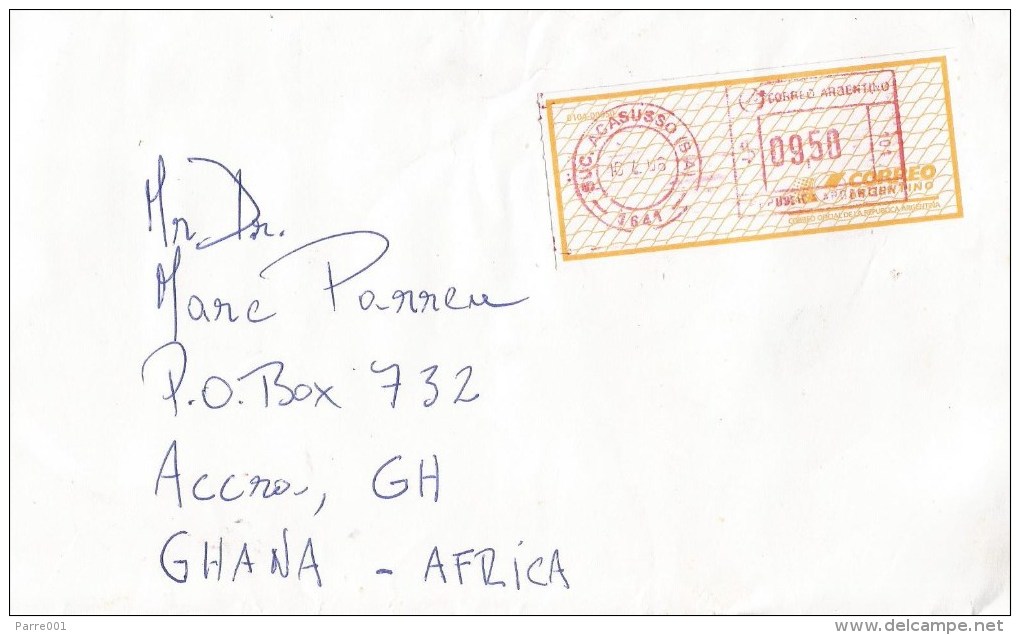 CORREO ARGENTINO
SUC. ACASUSSO (B.A)
09,50
1641
CORREO
ARGENTINO
CORREO OFICIAL DE LA REPUBLICA ARGENTINA
Mr. Dr.
Marc Parren
P.O. Box 732
Accra, GH
GHANA - AFRICA
Parre001
delcampe.net